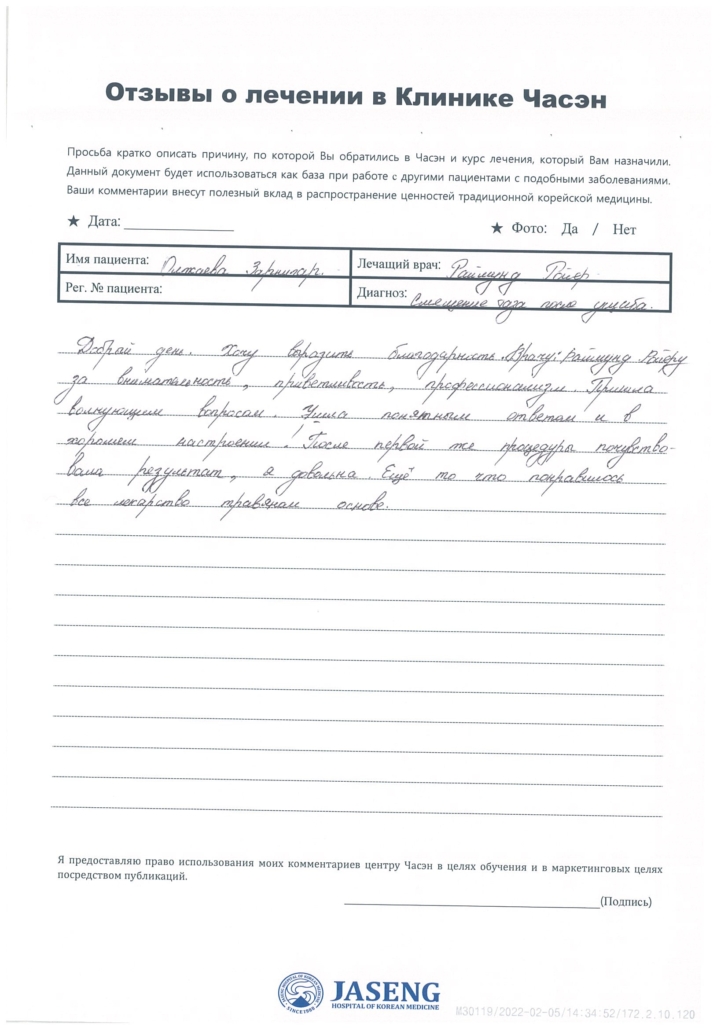 Отзывы о лечении в Клинике Часэн
Просьба кратко описать причину, по которой Вы обратились в Часэн и курс лечения, который Вам назначили.
Данный документ будет использоваться как база при работе с другими пациентами с подобными заболеваниями.
Ваши комментарии внесут полезный вклад в распространение ценностей традиционной корейской медицины.
★ Дата: ____________ ★ Фото: Да / Нет
Имя пациента: Лечащий врач: Раймунд Ройер.
Рег. № пациента: Диагноз: Смещение таза после ушиба.
Добрай день. Хочу выразить благодарность Врачу: Раймунд Ройеру
за внимательность, приветливость, профессионализм. Пришла
волнующим вопросам. Ушла понятным ответам и в
хорошем настроении! После первой же процедуры почувство-
вала результат, я довольна. Ещё то что понравилось
все лекарство травяном основе.
Я предоставляю право использования моих комментариев центру Часэн в целях обучения и в маркетинговых целях
посредством публикаций.
____________(Подпись)
JASENG HOSPITAL OF KOREAN MEDICINE
SINCE 1988
JASENG
HOSPITAL OF KOREAN MEDICINE
M30119/2022-02-05/14:34:52/172.2.10.120